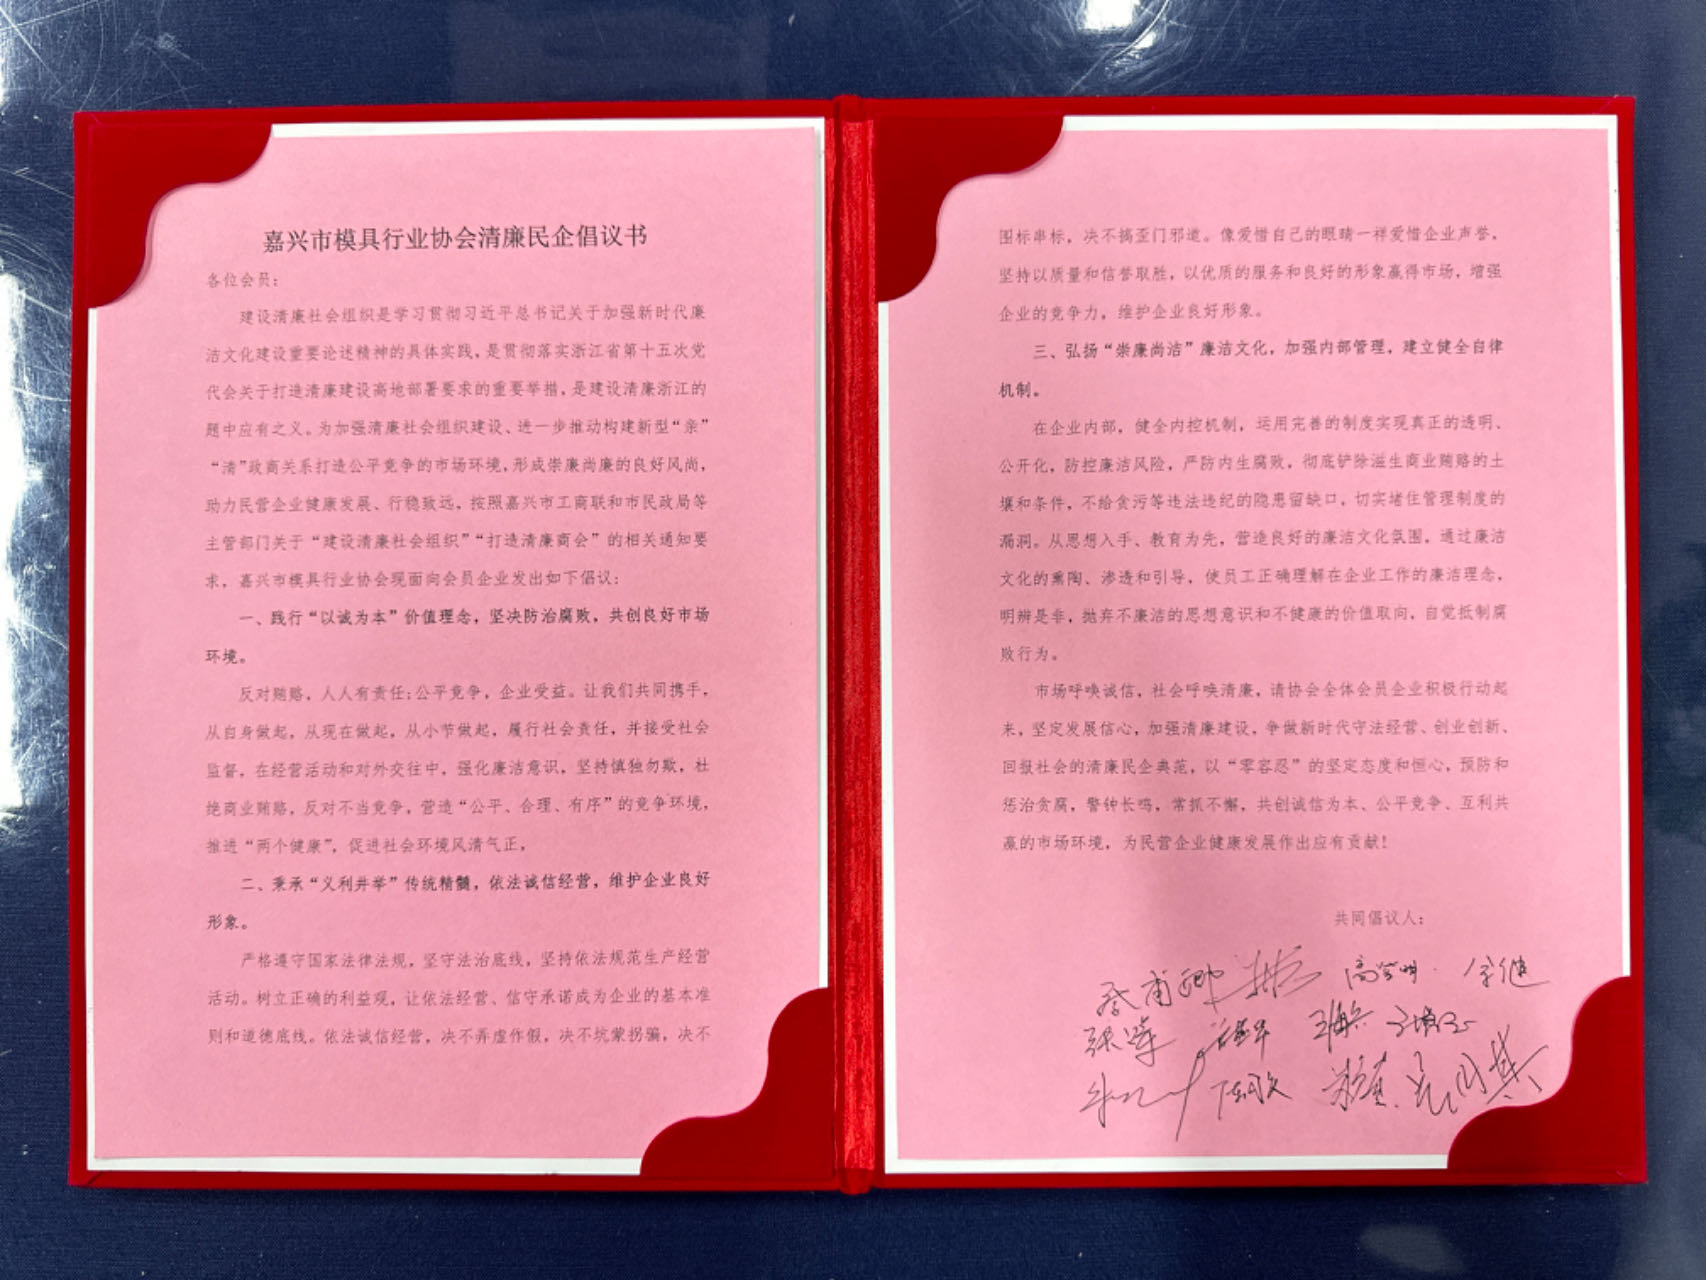 嘉兴市模具行业协会清廉民企倡议书
各位会员：
建设清廉社会组织是学习贯彻习近平总书记关于加强新时代廉
洁文化建设重要论述精神的具体实践，是贯彻落实浙江省第十五次党
代会关于打造清廉建设高地部署要求的重要举措，是建设清廉浙江的
题中应有之义。为加强清廉社会组织建设、进一步推动构建新型“亲”
“清”政商关系打造公平竞争的市场环境，形成崇廉尚廉的良好风尚，
助力民营企业健康发展、行稳致远，按照嘉兴市工商联和市民政局等
主管部门关于“建设清廉社会组织”“打造清廉商会”的相关通知要
求，嘉兴市模具行业协会现面向会员企业发出如下倡议：
一、践行“以诚为本”价值理念，坚决防治腐败，共创良好市场
环境。
反对贿赂，人人有责任；公平竞争，企业受益。让我们共同携手，
从自身做起，从现在做起，从小节做起，履行社会责任，并接受社会
监督，在经营活动和对外交往中，强化廉洁意识，坚持慎独勿欺，杜
绝商业贿赂，反对不当竞争，营造“公平、合理、有序”的竞争环境，
推进“两个健康”，促进社会环境风清气正，
二、秉承“义利并举”传统精髓，依法诚信经营，维护企业良好
形象。
严格遵守国家法律法规，坚守法治底线，坚持依法规范生产经营
活动。树立正确的利益观，让依法经营、信守承诺成为企业的基本准
则和道德底线。依法诚信经营，决不弄虚作假，决不坑蒙拐骗，决不
围标串标，决不搞歪门邪道。像爱惜自己的眼睛一样爱惜企业声誉，
坚持以质量和信誉取胜，以优质的服务和良好的形象赢得市场，增强
企业的竞争力，维护企业良好形象。
三、弘扬“崇廉尚洁”廉洁文化，加强内部管理，建立健全自律
机制。
在企业内部，健全内控机制，运用完善的制度实现真正的透明、
公开化，防控廉洁风险，严防内生腐败，彻底铲除滋生商业贿赂的土
壤和条件，不给贪污等违法违纪的隐患留缺口，切实堵住管理制度的
漏洞。从思想入手、教育为先，营造良好的廉洁文化氛围，通过廉洁
文化的熏陶、渗透和引导，使员工正确理解在企业工作的廉洁理念，
明辨是非，抛弃不廉洁的思想意识和不健康的价值取向，自觉抵制腐
败行为。
市场呼唤诚信，社会呼唤清廉，请协会全体会员企业积极行动起
来，坚定发展信心，加强清廉建设，争做新时代守法经营、创业创新、
回报社会的清廉民企典范，以“零容忍”的坚定态度和恒心，预防和
惩治贪腐，警钟长鸣，常抓不懈，共创诚信为本、公平竞争、互利共
赢的市场环境，为民营企业健康发展作出应有贡献！
共同倡议人：